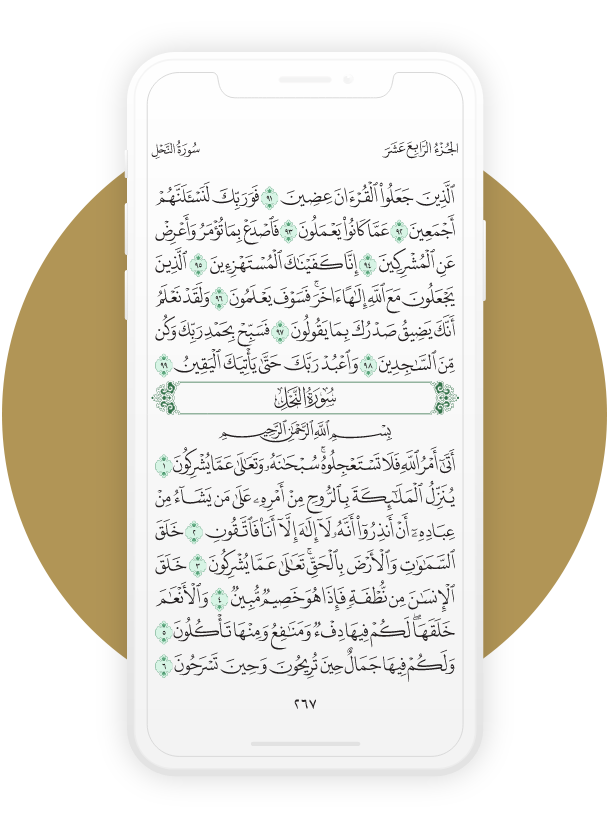 الجُزْءُ الرَّابِعَ عَشَرَ
سُورَةُ النَّحْلِ
ٱلَّذِينَ جَعَلُوا۟ ٱلْقُرْءَانَ عِضِينَ ٩١ فَوَرَبِّكَ لَنَسْـَٔلَنَّهُمْ
أَجْمَعِينَ ٩٢ عَمَّا كَانُوا۟ يَعْمَلُونَ ٩٣ فَٱصْدَعْ بِمَا تُؤْمَرُ وَأَعْرِضْ
عَنِ ٱلْمُشْرِكِينَ ٩٤ إِنَّا كَفَيْنَـٰكَ ٱلْمُسْتَهْزِءِينَ ٩٥ ٱلَّذِينَ
يَجْعَلُونَ مَعَ ٱللَّهِ إِلَـٰهًا ءَاخَرَ ۚ فَسَوْفَ يَعْلَمُونَ ٩٦ وَلَقَدْ نَعْلَمُ
أَنَّكَ يَضِيقُ صَدْرُكَ بِمَا يَقُولُونَ ٩٧ فَسَبِّحْ بِحَمْدِ رَبِّكَ وَكُن
مِّنَ ٱلسَّـٰجِدِينَ ٩٨ وَٱعْبُدْ رَبَّكَ حَتَّىٰ يَأْتِيَكَ ٱلْيَقِينُ ٩٩
سُورَةُ النَّحْلِ
بِسْمِ ٱللَّهِ ٱلرَّحْمَـٰنِ ٱلرَّحِيمِ
أَتَىٰٓ أَمْرُ ٱللَّهِ فَلَا تَسْتَعْجِلُوهُ ۚ سُبْحَـٰنَهُۥ وَتَعَـٰلَىٰ عَمَّا يُشْرِكُونَ ١
يُنَزِّلُ ٱلْمَلَـٰٓئِكَةَ بِٱلرُّوحِ مِنْ أَمْرِهِۦ عَلَىٰ مَن يَشَآءُ مِنْ
عِبَادِهِۦٓ أَنْ أَنذِرُوٓا۟ أَنَّهُۥ لَآ إِلَـٰهَ إِلَّآ أَنَا۠ فَٱتَّقُونِ ٢ خَلَقَ
ٱلسَّمَـٰوَٰتِ وَٱلْأَرْضَ بِٱلْحَقِّ ۚ تَعَـٰلَىٰ عَمَّا يُشْرِكُونَ ٣ خَلَقَ
ٱلْإِنسَـٰنَ مِن نُّطْفَةٍ فَإِذَا هُوَ خَصِيمٌ مُّبِينٌ ٤ وَٱلْأَنْعَـٰمَ
خَلَقَهَا ۗ لَكُمْ فِيهَا دِفْءٌ وَمَنَـٰفِعُ وَمِنْهَا تَأْكُلُونَ ٥
وَلَكُمْ فِيهَا جَمَالٌ حِينَ تُرِيحُونَ وَحِينَ تَسْرَحُونَ ٦
٢٦٧